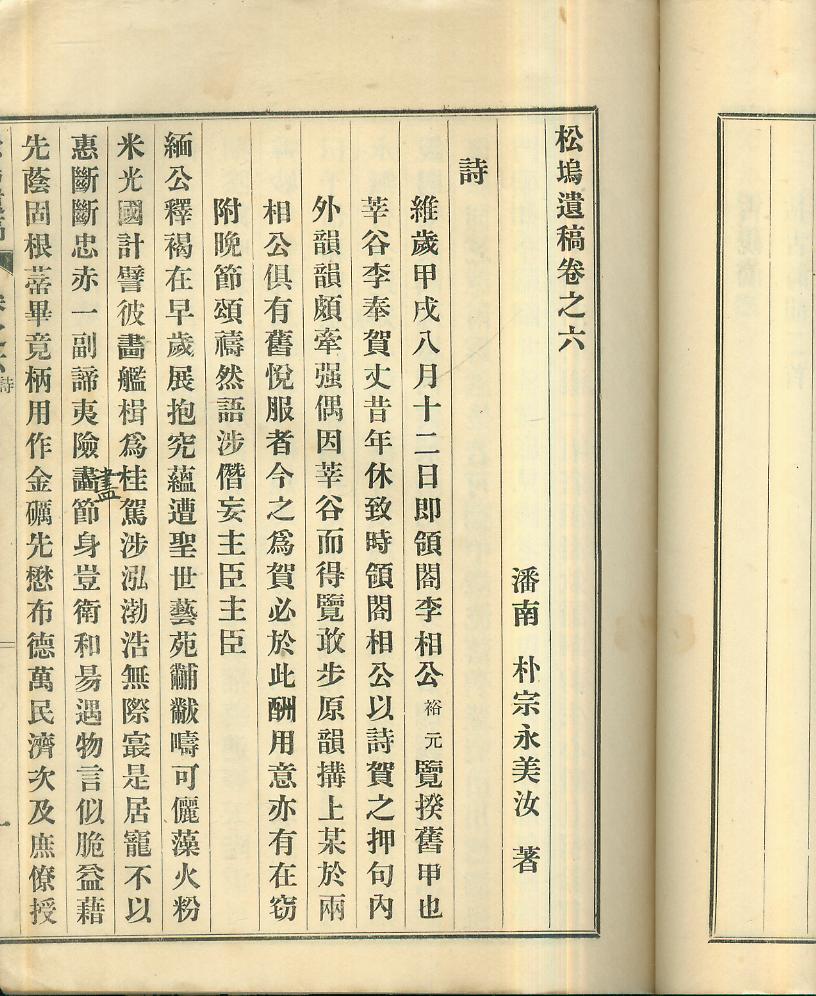 松塢遺稿卷之六
潘南 朴宗永美汝 著
詩
維歲甲戌八月十二日即領閤李相公裕元覽揆舊甲也
莘谷李奉賀丈昔年休致時領閤相公以詩賀之押句內
外韻韻頗牽强偶因莘谷而得覽敢步原韻搆上某於兩
相公俱有舊悅服者今之爲賀必於此酬用意亦有在窃
附晩節頌禱然語涉僭妄主臣主臣
緬公釋褐在早歲展抱究蘊遭聖世藝苑黼黻嚋可儷藻火粉
米光國計譬彼畵艦楫爲桂駕涉泓渤浩無際寔是居寵不以
惠斷斷忠赤一副諦夷險畵節身豈衛和昜遇物言似脆益藉
盡
先蔭固根蔕畢竟柄用作金礪先懋布德萬民濟次及庶僚授
卷之六
詩
一